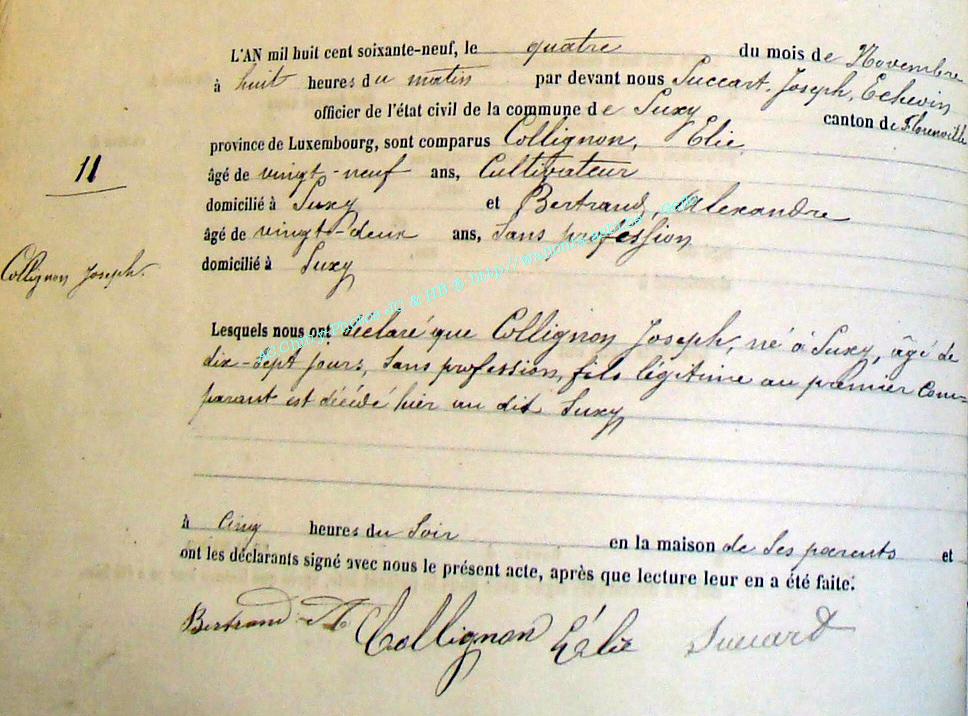 L'AN mil huit cent soixante-neuf, le quatre du mois de Novembre
à huit heures du matin par devant nous Succart, Joseph, Echevin
officier de l'état civil de la commune de Suxy canton de Florenville
province de Luxembourg, sont comparus Collignon, Elie
11
âgé de vingt-neuf ans, Cultivateur
domicilié à Suxy et Bertrand, Alexandre
âgé de vingt-deux ans, Sans profession
domicilié à Suxy
Collignon Joseph.
Lesquels nous ont déclaré que Collignon Joseph, né à Suxy, âgé de
dix-sept jours, Sans profession, fils légitime au premier Com=
parant est décédé hier au dit Suxy
à Cinq heures du Soir en la maison de Ses parents et
ont les déclarants signé avec nous le présent acte, après que lecture leur en a été faite.
Bertrand A Collignon Elie Succart
JC & HB @ http://